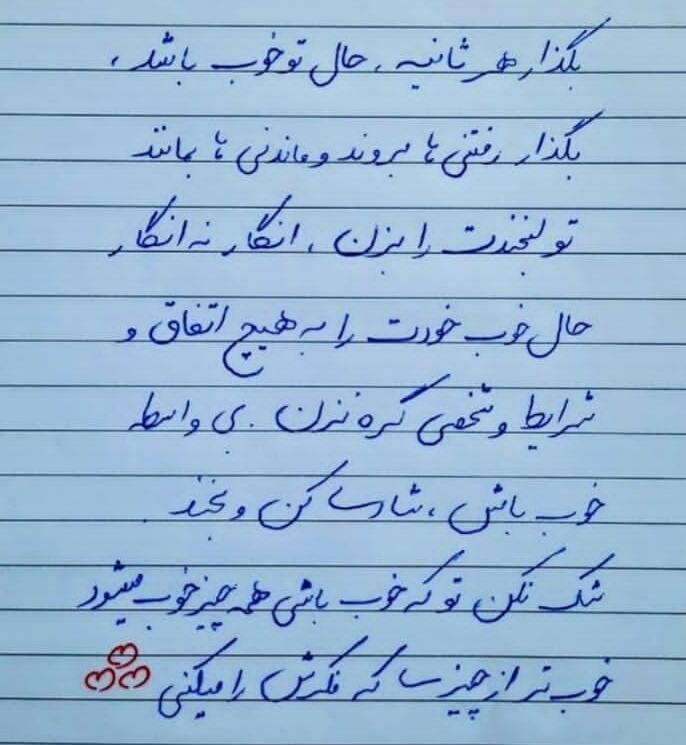 بگذار هر ثانیه، حال تو خوب باشد،
بگذار رفتنی ها بروند و ماندنی ها بمانند
تو لبخندت را بزن، انگار نه انگار
حال خوب خودت را به هیچ اتفاق و
شرایط و شخصی گره نزن. بی واسطه
خوب باش، شادی کن و بخند.
شک نکن تو که خوب باشی همه چیز خوب میشود
خوب تر از چیزی که فکرش را میکنی